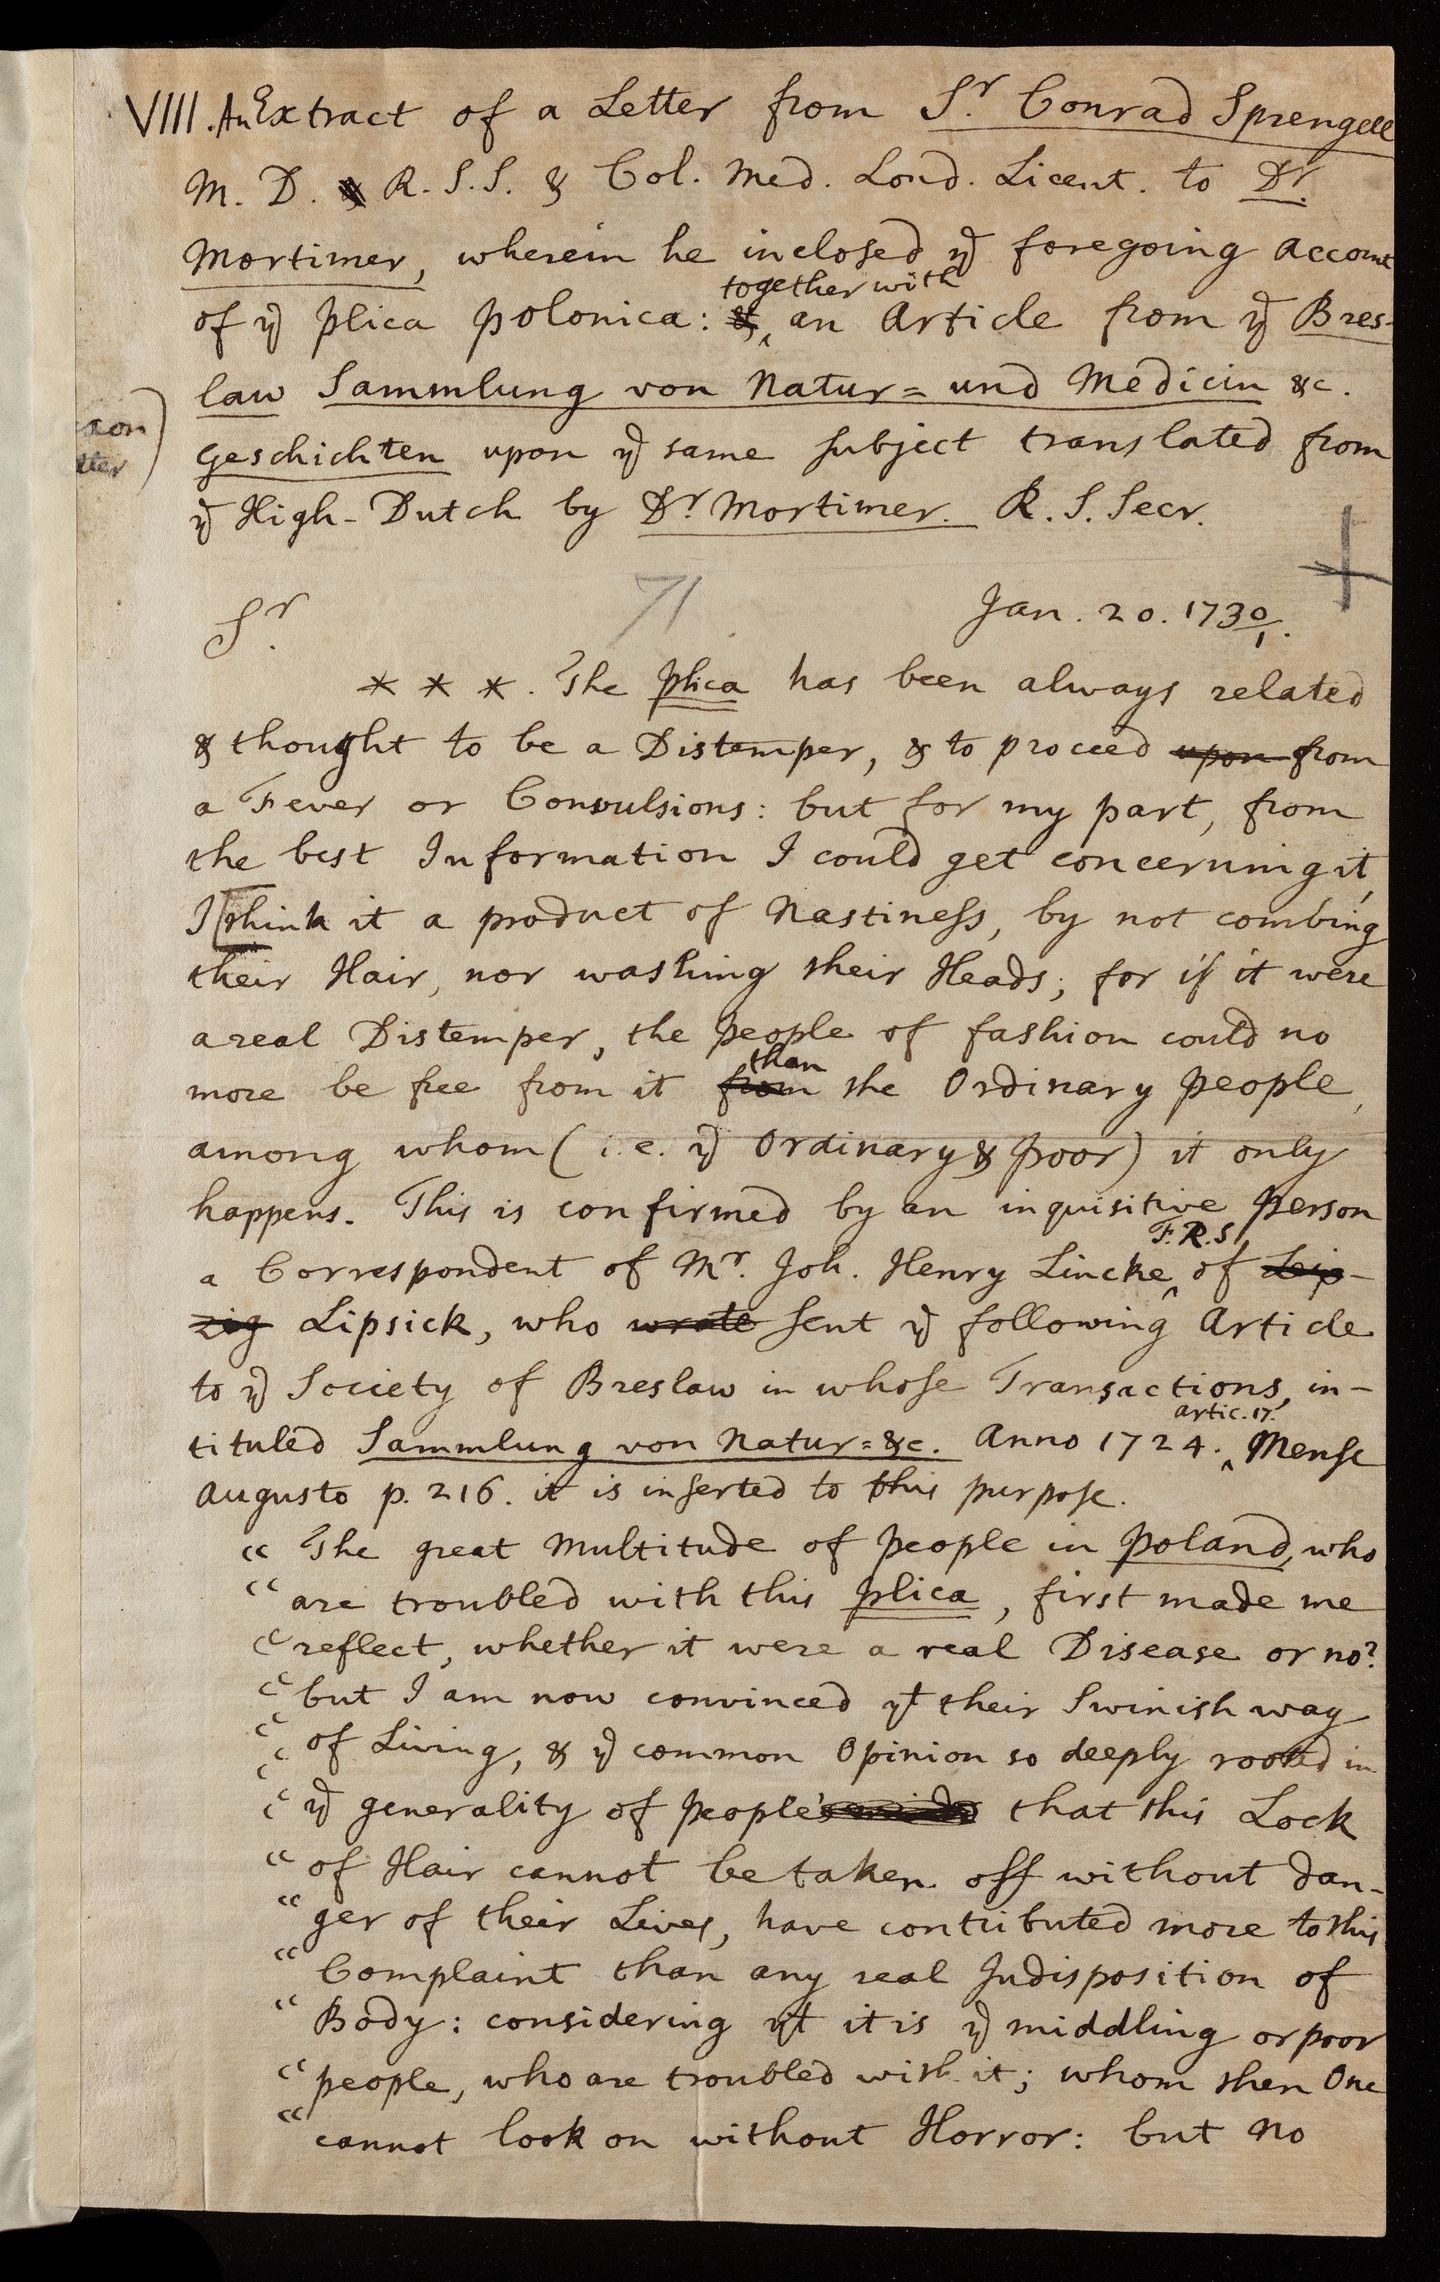 VIII. An Extract of a Letter from Sr. Conrad Sprengell
M. D. R. S. S. & Col. Med. Lond. Licent. to Dr.
Mortimer, wherein he inclosed ye foregoing Account
together with
of ye Plica Polonica: & ‸ an Article from ye Bres-
law Sammlung von Natur= und Medicin &c.
Geschichten upon ye same Subject translated from
ye High-Dutch by Dr. Mortimer. R. S. Secr.
71
Sr.
Jan. 20. 1730/1.
* * *. The Plica has been always related
& thought to be a Distemper, & to proceed upon from
a Fever or Convulsions: but for my part, from
the best Information I could get concerning it,
I [think it a product of Nastiness, by not combing
their Hair, nor washing their Heads; for if it were
a real Distemper, the People of fashion could no
than
more be free from it from the Ordinary People,
among whom (i.e. ye Ordinary & Poor) it only
happens. This is confirmed by an inquisitive Person
F.R.S.
a Correspondent of Mr. Joh. Henry Lincke ‸ of Leip-
zig Lipsick, who wrote sent ye following Article
to ye Society of Breslaw in whose Transactions, in-
artic. 17.
tituled Sammlung von Natur= &c. Anno 1724. ‸ Mense
Augusto p. 216. it is inserted to this purpose.
“ The great Multitude of People in Poland, who
“ are troubled with this Plica, first made me
“ reflect, whether it were a real Disease or no?
“ but I am now convinced yt their Swinish way
“ of Living, & ye common Opinion so deeply rooted in
“ ye generality of People's minds that this Lock
“ of Hair cannot be taken off without dan-
“ ger of their Lives, have contributed more to this
“ Complaint than any real Indisposition of
“ Body: considering yt it is ye middling or poor
“ people, who are troubled with it; whom then One
“ cannot look on without Horror: but no